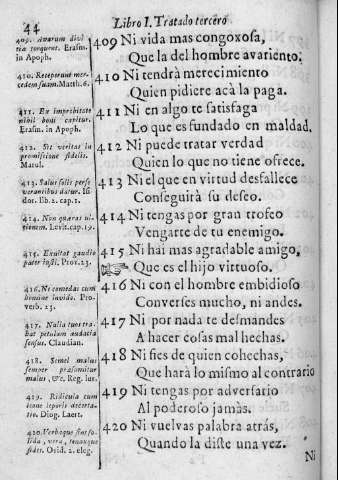 44
Libro I. Tratado tercero
409 Ni vida mas congoxosa,
Que la del hombre avariento.
410 Ni tendrà merecimiento
Quien pidiere acà la paga.
411 Ni en algo te satisfaga
Lo que es fundado en maldad.
412 Ni puede tratar verdad
Quien lo que no tiene ofrece.
413 Ni el que en virtud desfallece
Conseguirà su deseo.
414 Ni tengas por gran trofeo
Vengarte de tu enemigo.
415 Ni hai mas agradable amigo,
Que es el hijo virtuoso.
416 Ni con el hombre embidioso
Converses mucho, ni andes.
417 Ni por nada te desmandes
A hacer cosas mal hechas.
418 Ni fies de quien cohechas,
Que harà lo mismo al contrario
419 Ni tengas por adversario
Al poderoso jamàs.
420 Ni vuelvas palabra atràs,
Quando la diste una vez.
Ni
409. Avarum divitiæ torquent. Erasm.
in Apoph.
410. Receperunt mercedem suam. Matth. 6.
411. Ex improbitate
nihil boni capitur.
Erasm. in Apoph.
412. Sit veritas in
promissione fidelis.
413. Salus solis perseverantibus datur. Isidor. lib. 2. cap. 1.
414. Non quæras ultionem. Levit. cap. 19.
415. Exultat gaudio
pater justi. Prov. 23.
416. Ne comedas cum
homine invido. Proverb. 23.
417. Nulla tuos
petulum audatia
sensus. Claudian.
418. Semel malus
semper præsumitur
malus, &c. Reg. Iur.
419. Ridicula cum
leone leporis
Diog. Laert.
420. Verboque sint solida, vera,
Ovid. 2. eleg.